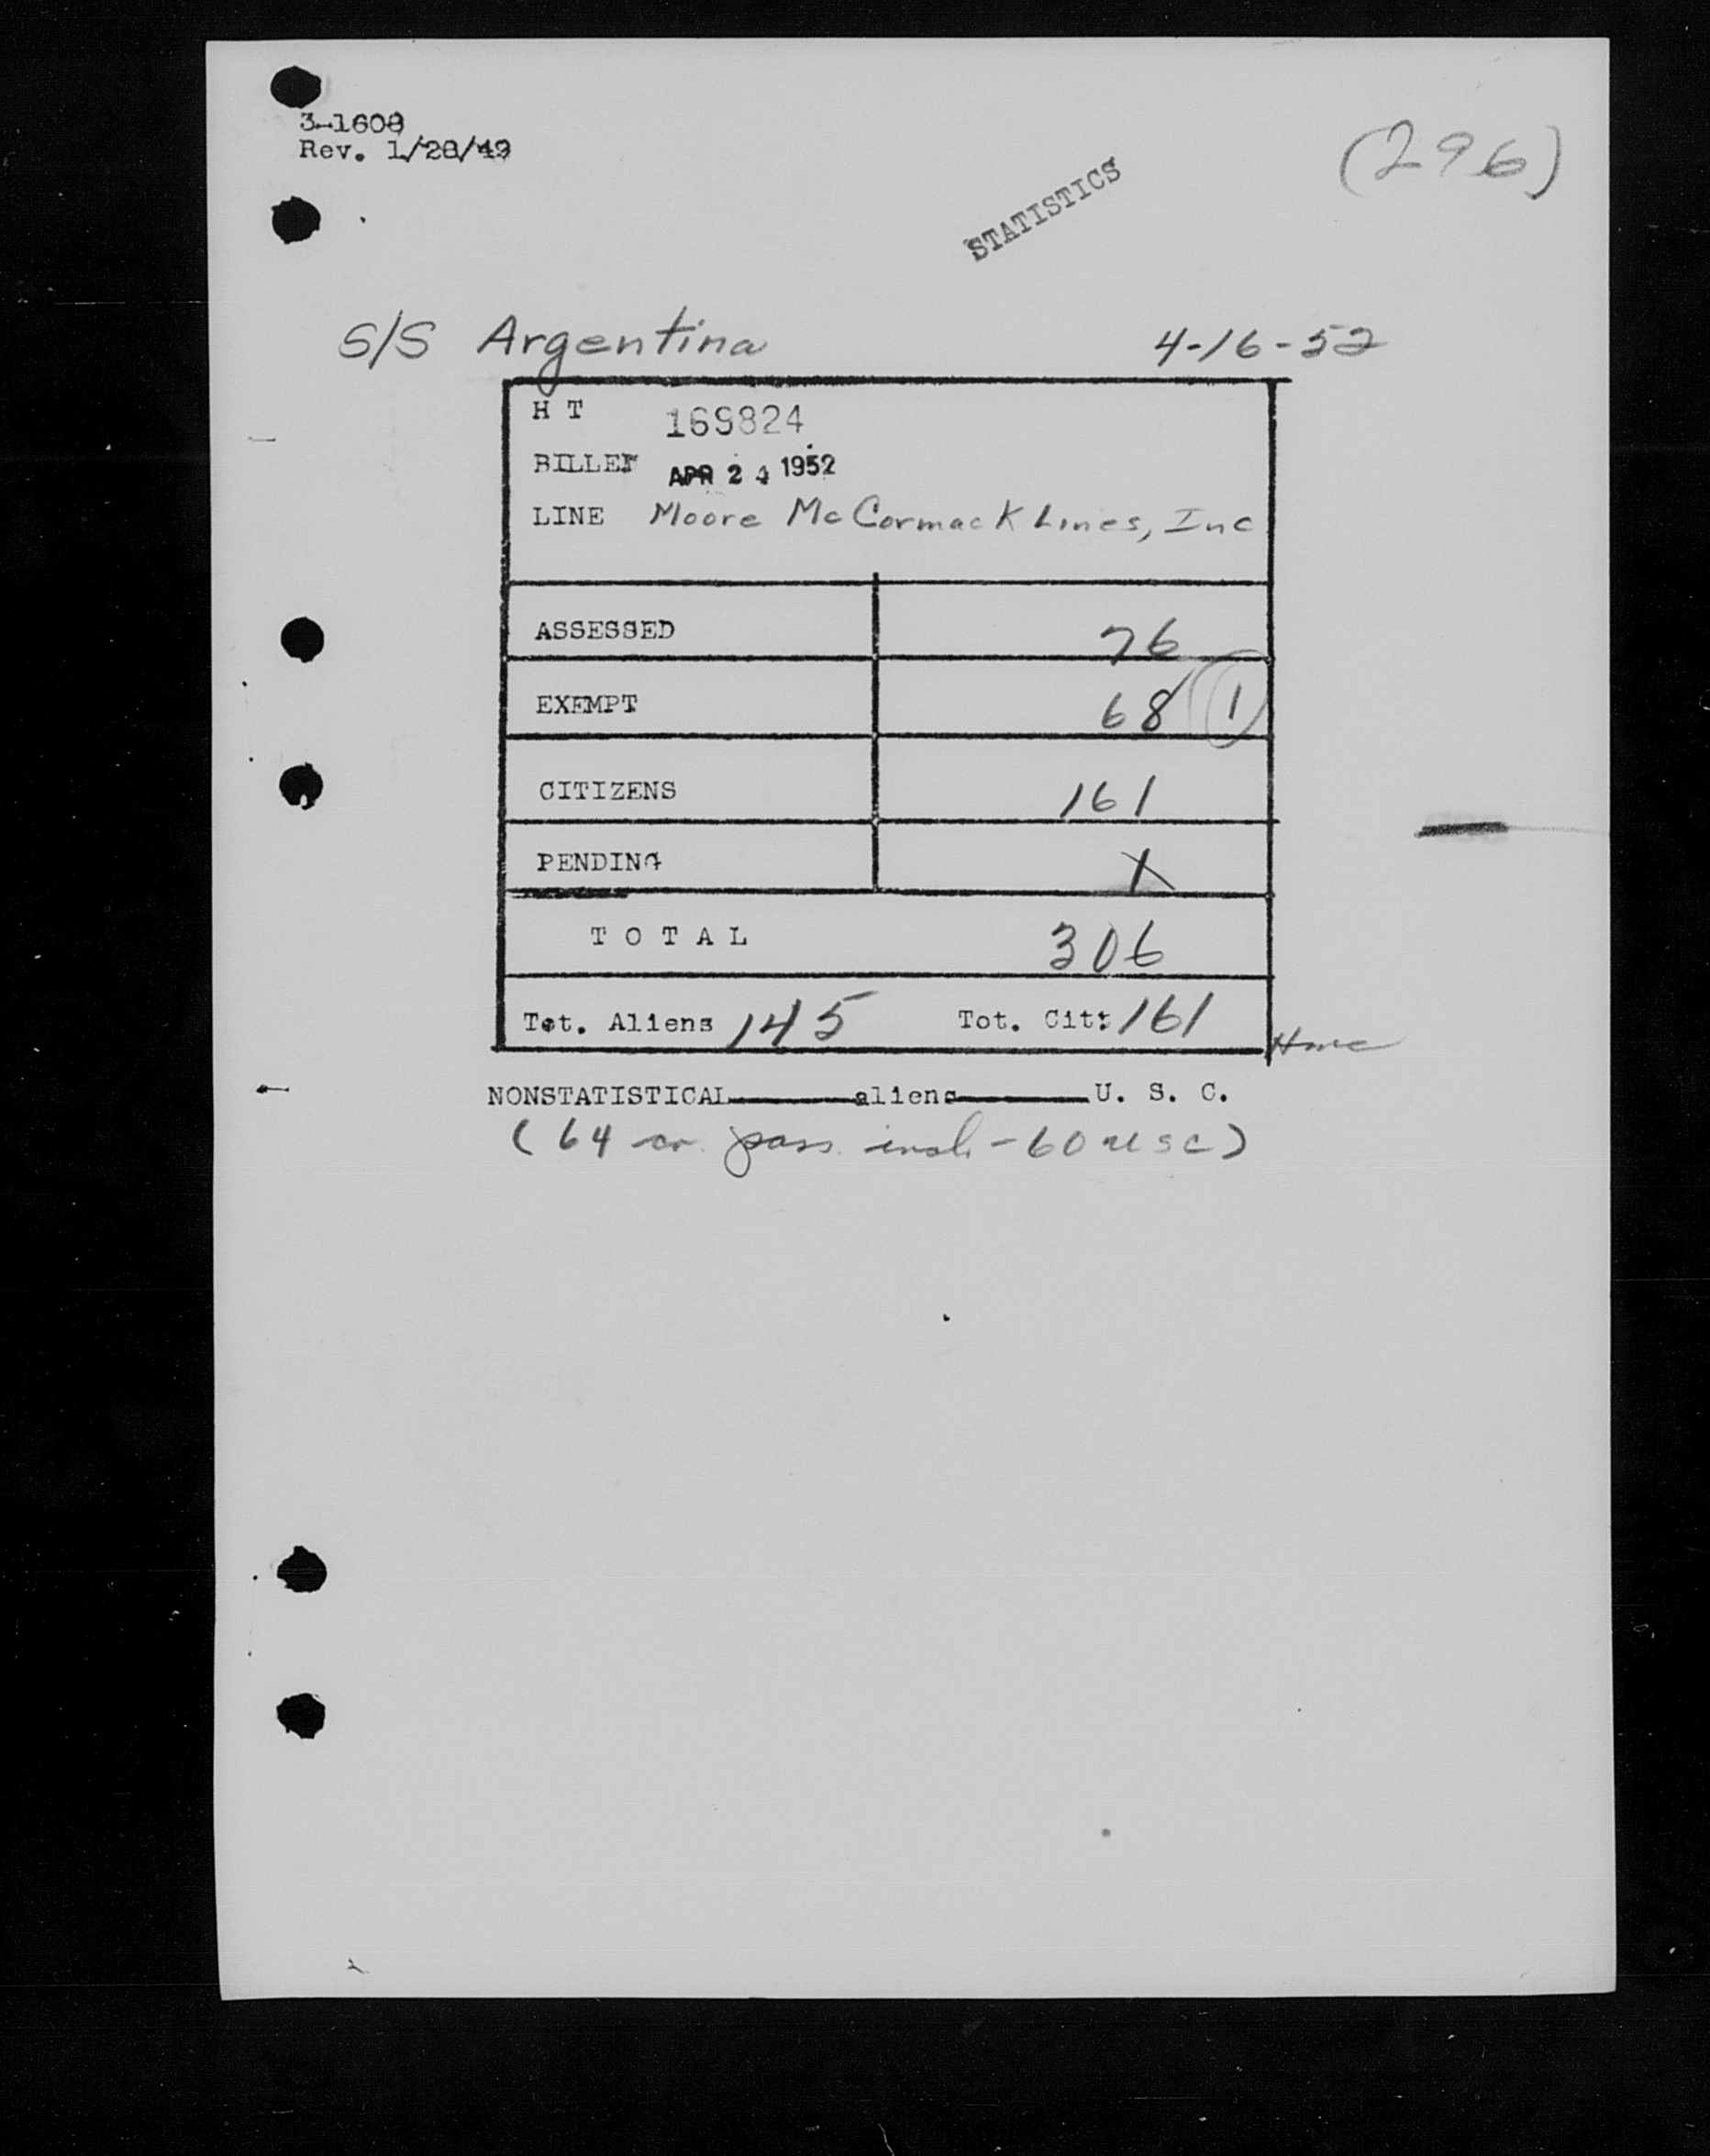 3-1608
Rev. 1/28/49
(296)
STATISTICS
S/S Argentina 4-16-52
H T 169824
BILLED APR 24 1952
LINE Moore McCormack Lines, Inc
ASSESSED 76
EXEMPT 68 1
CITIZENS 161
PENDING X
TOTAL 306
Tot. Aliens 145 Tot. Cit: 161
NONSTATISTICAL aliens U. S. C.
(64 cr. pass. incl. - 60 USC)